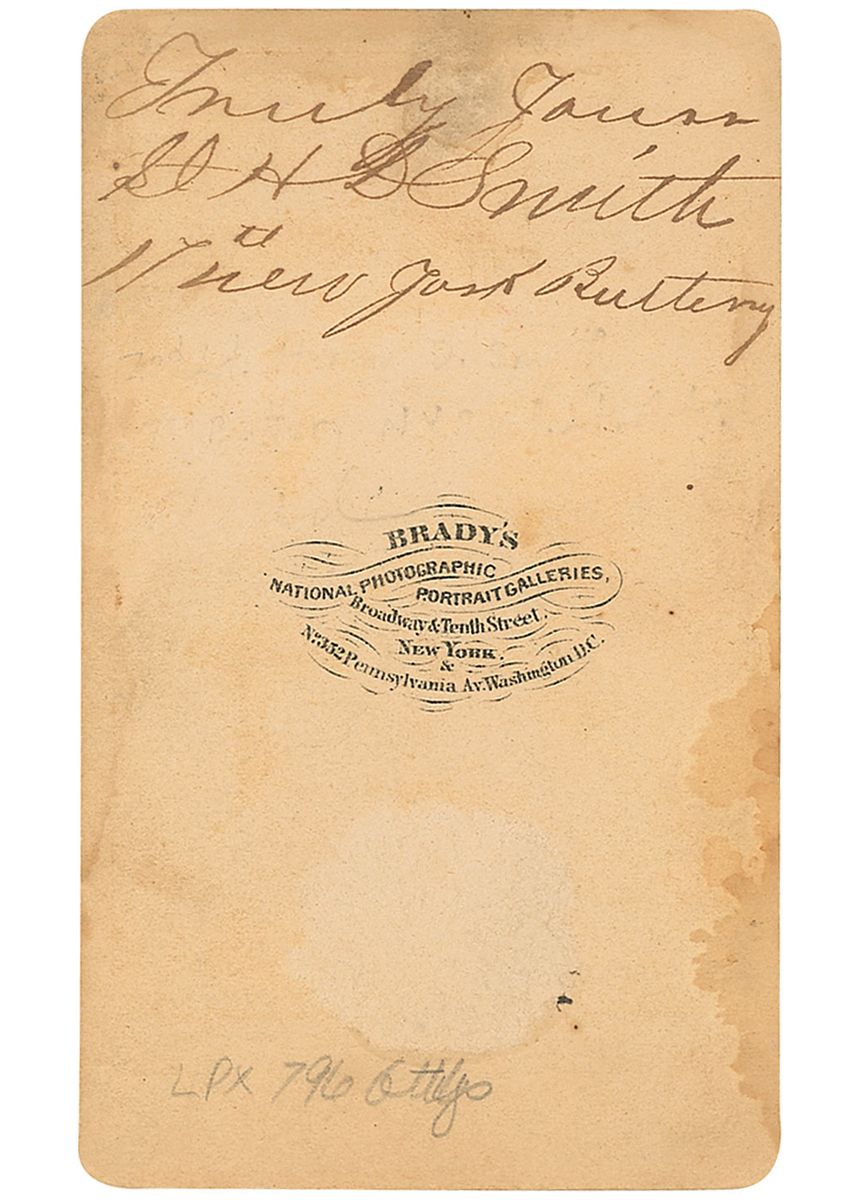 Truly Yours
Lt H D Smith
17th New York Battery
BRADY'S
NATIONAL PHOTOGRAPHIC
PORTRAIT GALLERIES,
Broadway & Tenth Street,
NEW YORK.
&
No. 352 Pennsylvania Av. Washington D.C.
LPX 796